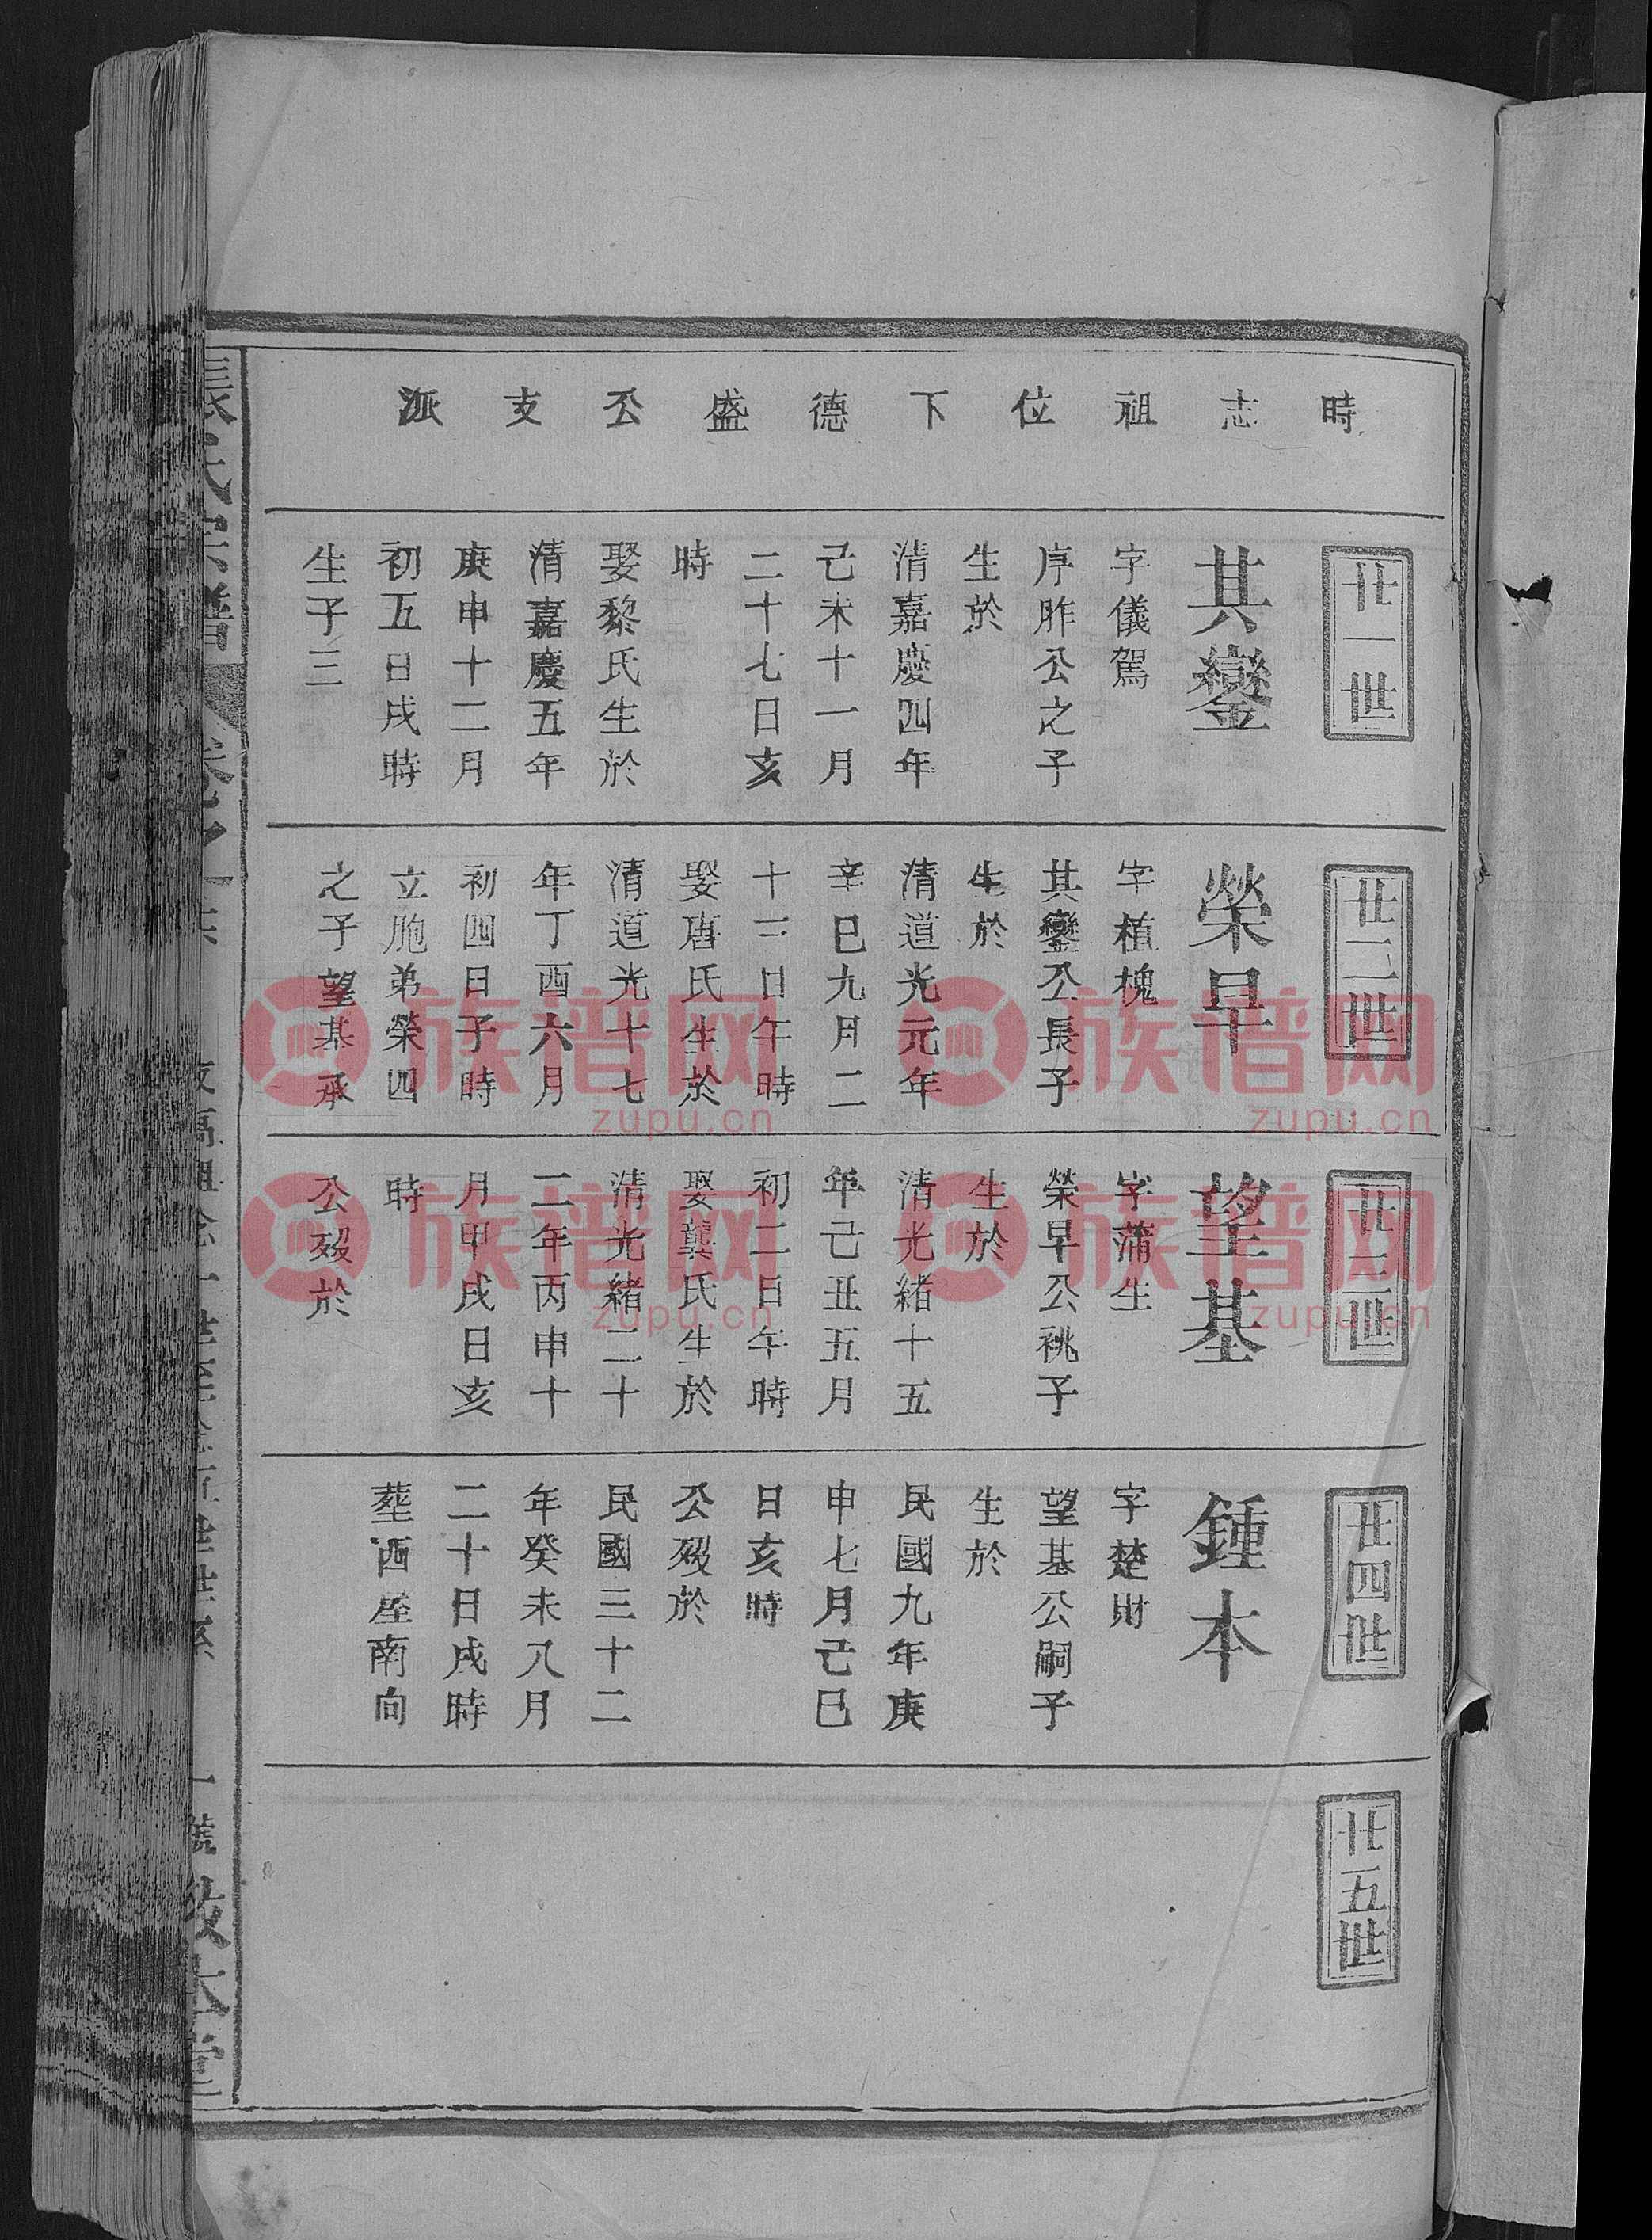 時志祖位下德盛公支派
廿一世
其鑾
字儀駕
序昨公之子
生於
清嘉慶四年
己未十一月
二十七日亥
時
娶黎氏生於
清嘉慶五年
庚申十二月
初五日戌時
生子三
廿二世
榮早
字植槐
其鑾公長子
生於
清道光元年
辛巳九月二
十三日午時
娶唐氏生於
清道光十七
年丁酉六月
初四日子時
立胞弟榮四
之子望基承
廿三世
望基
字蒲生
榮早公祧子
生於
清光緒十五
年己丑五月
初二日午時
娶龔氏生於
清光緒二十
二年丙申十
月甲戌日亥
時
公歿於
廿四世
鍾本
字楚財
望基公嗣子
生於
民國九年庚
申七月己巳
日亥時
公歿於
民國三十二
年癸未八月
二十日戌時
葬酒屋南向
廿五世
張氏宗譜
敦本堂
族谱网
zupu.cn
族谱网
zupu.cn
族谱网
zupu.cn
族谱网
zupu.cn